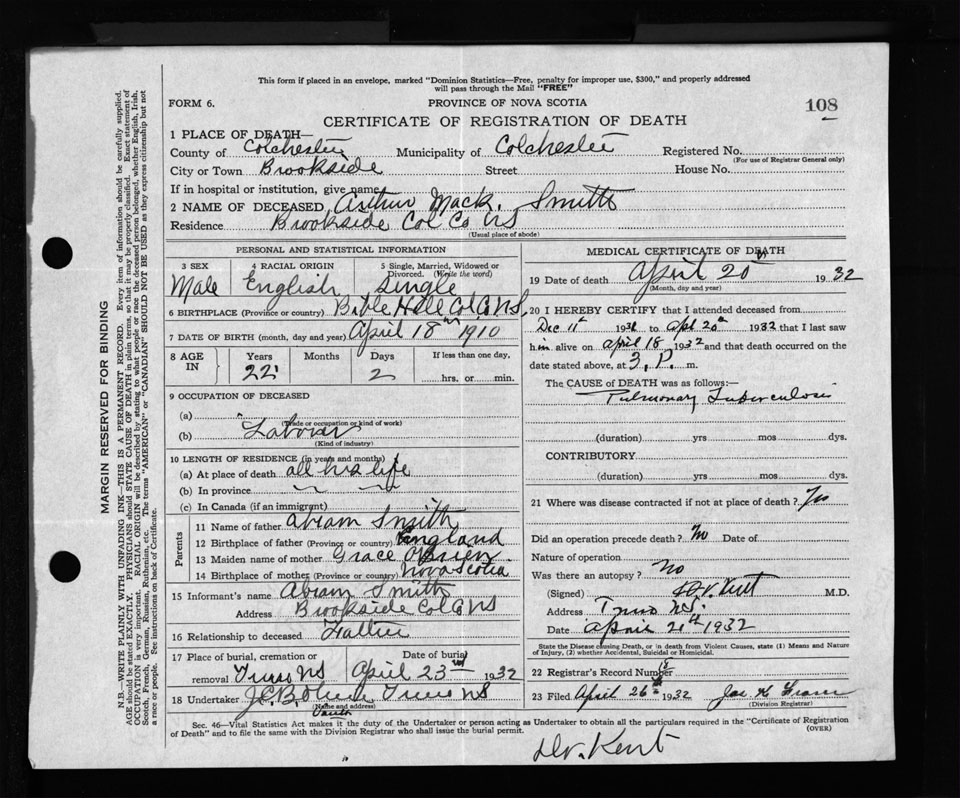 This form if placed in an envelope, marked "Dominion Statistics—Free, penalty for improper use, $300," and properly addressed
will pass through the Mail "FREE"
FORM 6.
PROVINCE OF NOVA SCOTIA
108
CERTIFICATE OF REGISTRATION OF DEATH
1 PLACE OF DEATH—
County of Colchester Municipality of Colchester Registered No.
(For use of Registrar General only)
City or Town Brookside Street House No.
If in hospital or institution, give name
2 NAME OF DECEASED Arthur Mack. Smith
Residence Brookside Col Co NS
(Usual place of abode)
PERSONAL AND STATISTICAL INFORMATION
3 SEX
Male
4 RACIAL ORIGIN
English
5 Single, Married, Widowed or
Divorced. (Write the word)
Single
6 BIRTHPLACE (Province or country) Bible Hill Col Co NS
7 DATE OF BIRTH (month, day and year) April 18th 1910
8 AGE
IN
Years
22
Months
Days
2
If less than one day,
hrs. or min.
9 OCCUPATION OF DECEASED
(a)
(Trade or occupation or kind of work)
(b) Laborer
(Kind of industry)
10 LENGTH OF RESIDENCE (in years and months)
(a) At place of death all his life
(b) In province
(c) In Canada (if an immigrant)
Parents
11 Name of father Abram Smith
12 Birthplace of father (Province or country) England
13 Maiden name of mother Grace O'Brien
14 Birthplace of mother (Province or country) Nova Scotia
15 Informant's name Abram Smith
Address Brookside Col Co NS
16 Relationship to deceased Father
17 Place of burial, cremation or
removal Truro NS
Date of burial
April 23rd 1932
18 Undertaker Truro NS
(Name and address)
MEDICAL CERTIFICATE OF DEATH
19 Date of death April 20th 1932
(Month, day and year)
20 I HEREBY CERTIFY that I attended deceased from
Dec 11th 1931 to Apl 20th 1932 that I last saw
him alive on April 18 1932 and that death occurred on
date stated above, at 3. P. m.
The CAUSE of DEATH was as follows:—
Pulmonary Tuberculosis
(duration) yrs mos dys.
CONTRIBUTORY
(duration) yrs mos dys.
21 Where was disease contracted if not at place of death?
Did an operation precede death? No Date of
Nature of operation
Was there an autopsy? No
(Signed) Kent M.D.
Address Truro N.S.
Date April 21st 1932
State the Disease causing Death, or in death from Violent Causes, state (1) Means and Nature
of Injury, (2) whether Accidental, Suicidal or Homicidal.
22 Registrar's Record Number 18
23 Filed April 26th 1932
(Division Registrar)
Sec. 46—Vital Statistics Act makes it the duty of the Undertaker or person acting as Undertaker to obtain all the particulars required in the "Certificate of Registration
of Death" and to file the same with the Division Registrar who shall issue the burial permit.
(OVER)
Dr. Kent
MARGIN RESERVED FOR BINDING
N.B.—WRITE PLAINLY WITH UNFADING INK—THIS IS A PERMANENT RECORD. Every item of information should be carefully supplied.
AGE should be stated EXACTLY. PHYSICIANS should STATE CAUSE OF DEATH in plain terms, so that it may be properly classified. Exact statement of
OCCUPATION is very important. RACIAL ORIGIN will be described by stating to what people or race the deceased person belonged, whether English, Irish,
Scotch, French, German, Russian, Ruthenian, etc. The terms "AMERICAN" or "CANADIAN" SHOULD NOT BE USED as they express citizenship but not
a race or people. See instructions on back of Certificate.